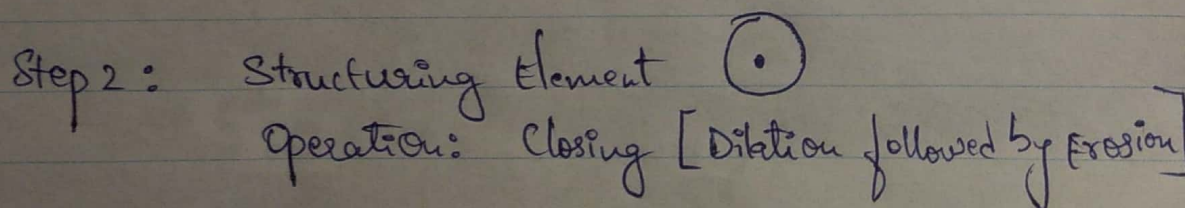 Step 2: Structuring Element
Operation: Closing [Dilation followed by Erosion]